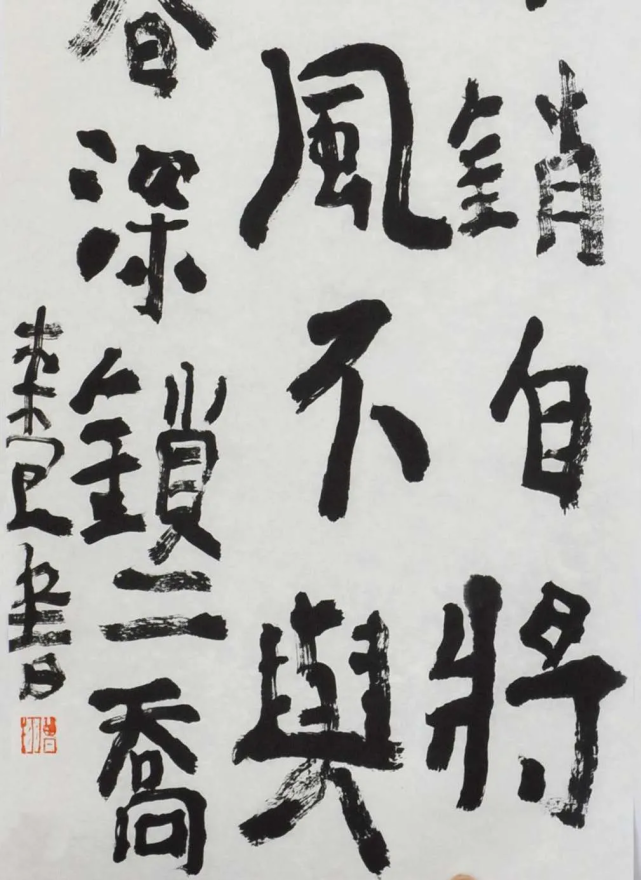 銷自將
風不與
春深鎖二喬
書